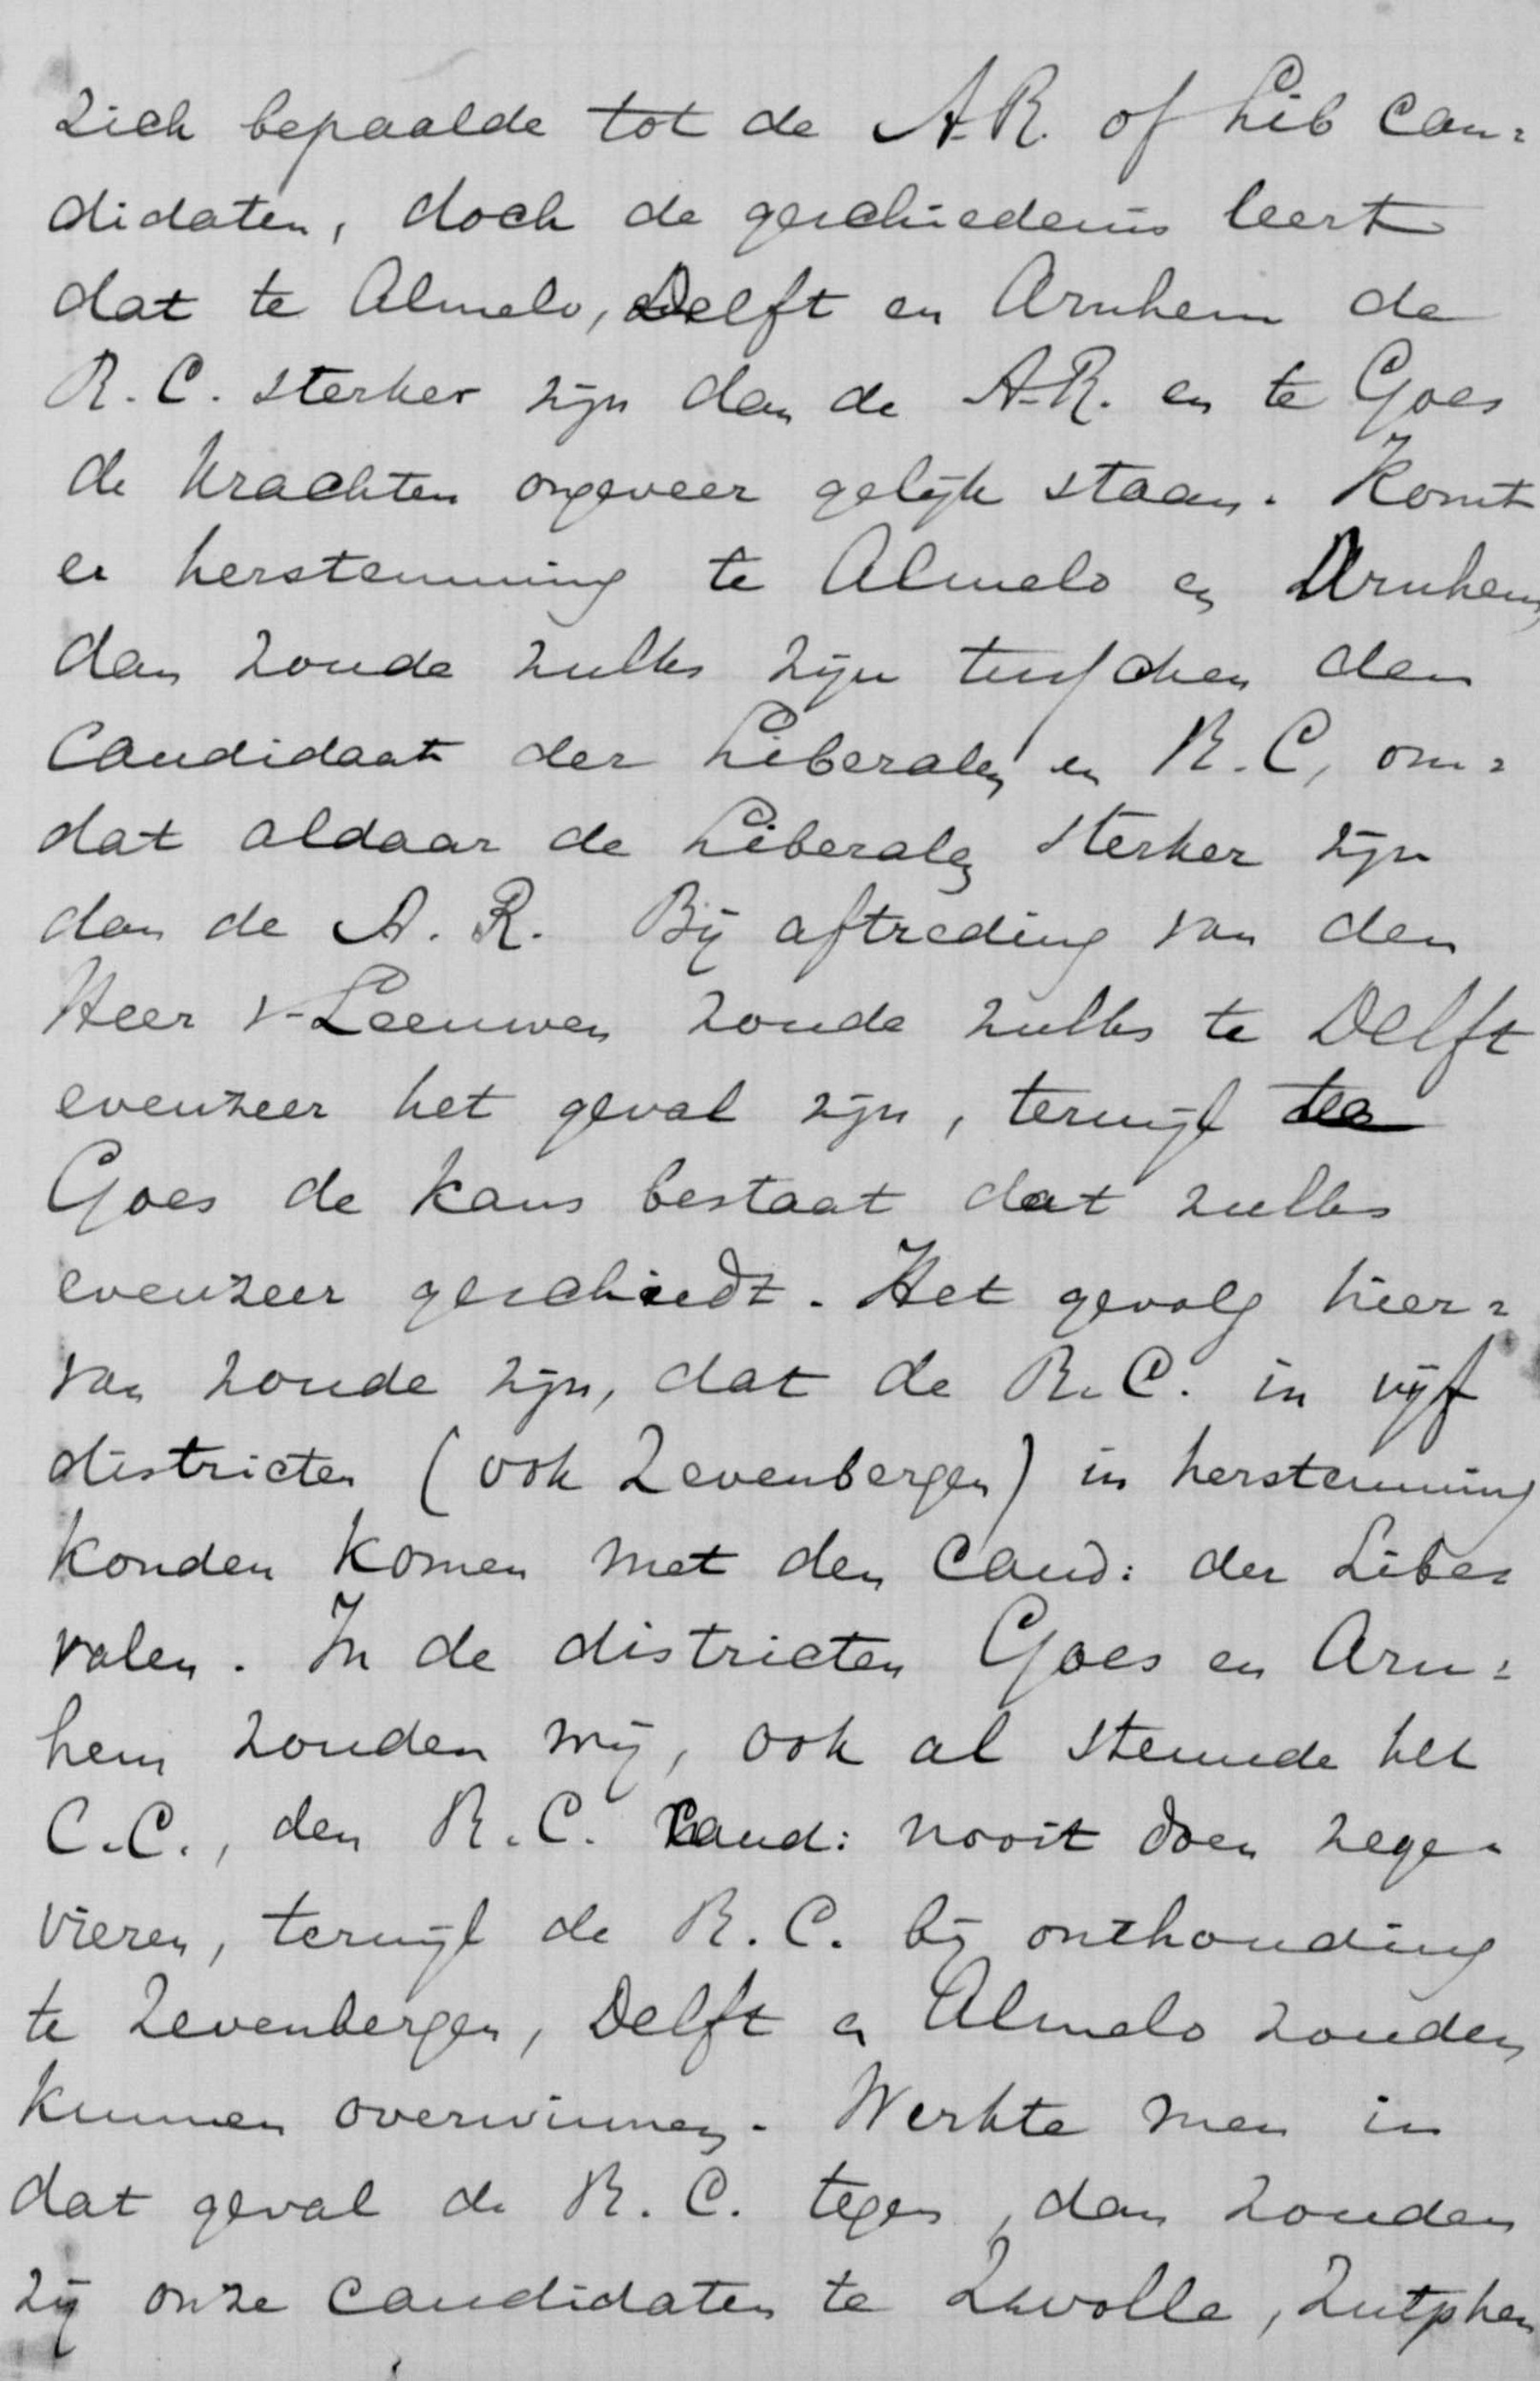 zich bepaalde tot de A.R. of Lib Can=
didaten, doch de geschiedenis leert
dat te Almelo, Delft en Arnhem de
R.C. sterker zijn dan de A.R. en te Goes
de krachten ongeveer gelijk staan. Komt
er herstemming te Almelo en Arnhem
dan zoude zulks zijn tusschen den
Candidaat der Liberalen en R.C, om=
dat aldaar de Liberalen sterker zijn
dan de A.R. Bij aftreding van den
Heer v. Leeuwen zoude zulks te Delft
evenzeer het geval zijn, terwijl te
Goes de kans bestaat dat zulks
evenzeer geschiedt. Het gevolg hier=
van zoude zijn, dat de R.C. in vijf
districten (ook Zevenbergen) in herstemming
konden komen met den Cand: der Libe=
ralen. In de districten Goes en Arn=
hem zouden wij, ook al steunde het
C.C., den R.C. Cand: nooit doen zege=
vieren, terwijl de R.C. bij onthouding
te Zevenbergen, Delft en Almelo zouden
kunnen overwinnen. Werkte men in
dat geval de R.C. tegen, dan zouden
zij onze candidaten te Zwolle, Zutphen